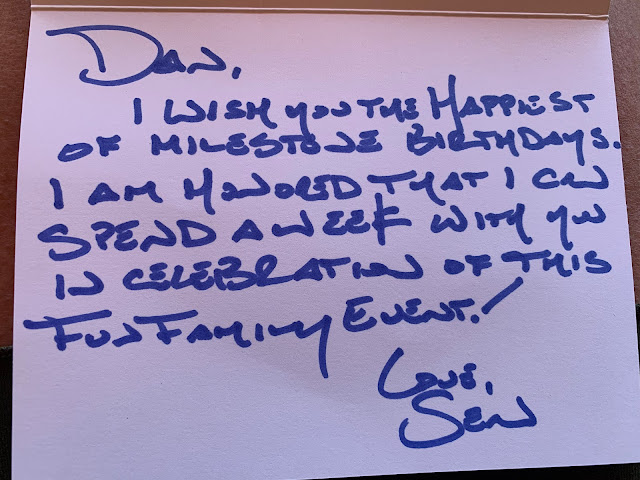 Dan,
I wish you the Happiest
of milestone Birthdays.
I am honored that I can
spend a week with you
in celebration of this
Fun Family Event!
Love,
Sen